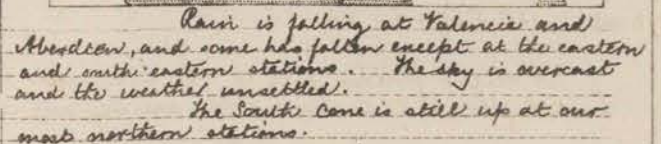 Rain is falling at Valencia and
Aberdeen, and some has fallen except at the eastern
and south eastern stations. The sky is overcast
and the weather unsettled.
The South Cone is still up at our
most northern stations.